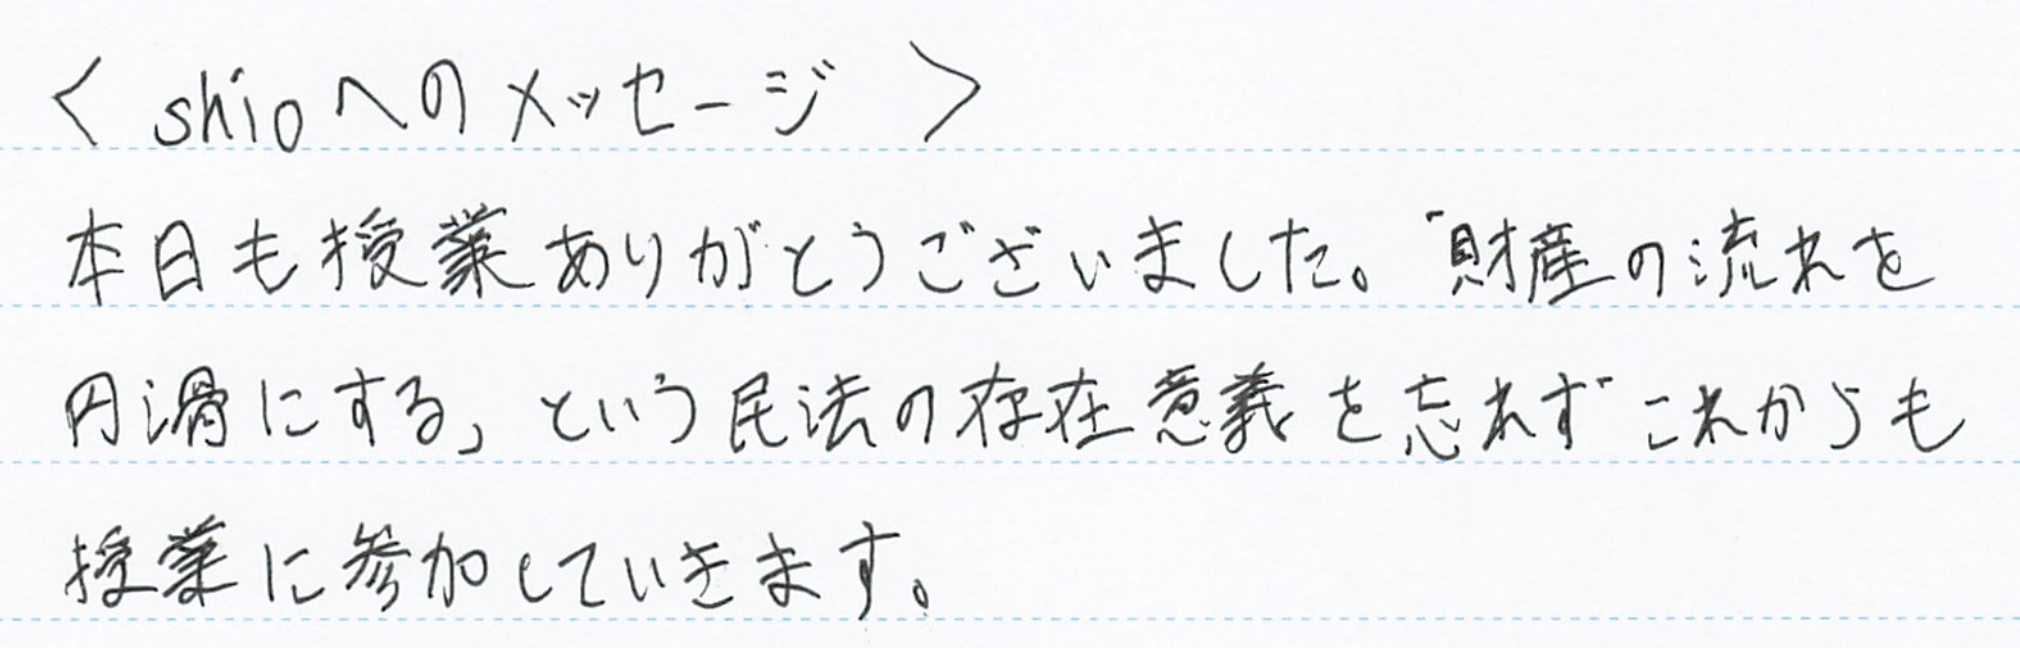 < shioへのメッセージ >
本日も授業ありがとうございました。「財産の流れを
円滑にする」という民法の存在意義を忘れずこれからも
授業に参加していきます。